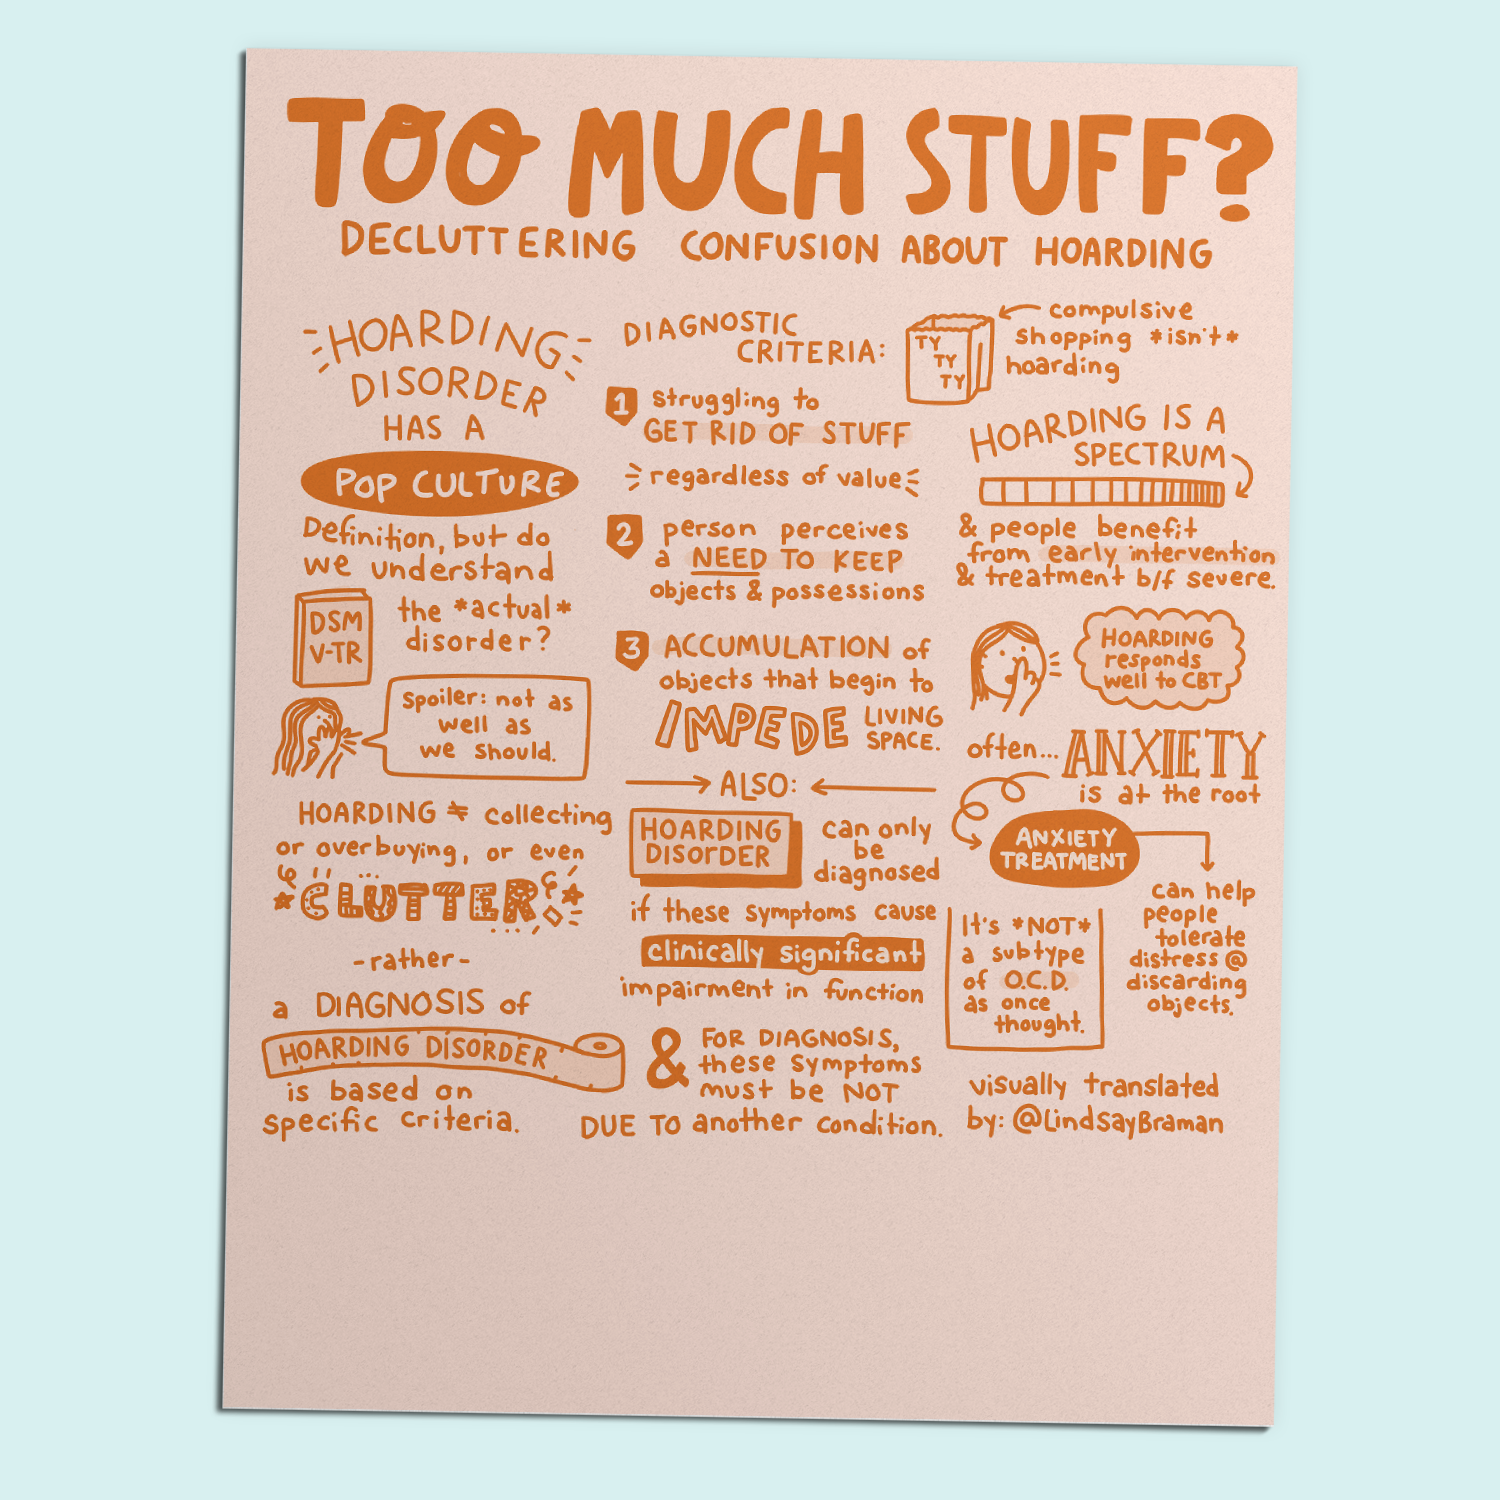 TOO MUCH STUFF?
DECLUTTERING CONFUSION ABOUT HOARDING
HOARDING
DISORDER
HAS A
POP CULTURE
Definition, but do
we understand
DSM
V-TR
the *actual*
disorder?
Spoiler: not as
well as
we should.
HOARDING ≠ collecting
or overbuying, or even
*CLUTTER*
-rather-
a DIAGNOSIS of
HOARDING DISORDER
is based on
specific criteria.
DIAGNOSTIC
CRITERIA:
1 struggling to
GET RID OF STUFF
regardless of value
2 person perceives
a NEED TO KEEP
objects & possessions
3 ACCUMULATION of
objects that begin to
IMPEDE LIVING
SPACE.
ALSO:
HOARDING
DISORDER
can only
be
diagnosed
if these symptoms cause
clinically significant
impairment in function
& FOR DIAGNOSIS,
these symptoms
must be NOT
DUE TO another condition.
TY
TY
TY
compulsive
shopping *isn't*
hoarding
HOARDING IS A
SPECTRUM
& people benefit
from early intervention
& treatment b/f severe.
HOARDING
responds
well to CBT
often... ANXIETY
is at the root
ANXIETY
TREATMENT
can help
people
tolerate
distress @
discarding
objects.
It's *NOT*
a subtype
of O.C.D.
as once
thought.
visually translated
by: @LindsayBraman